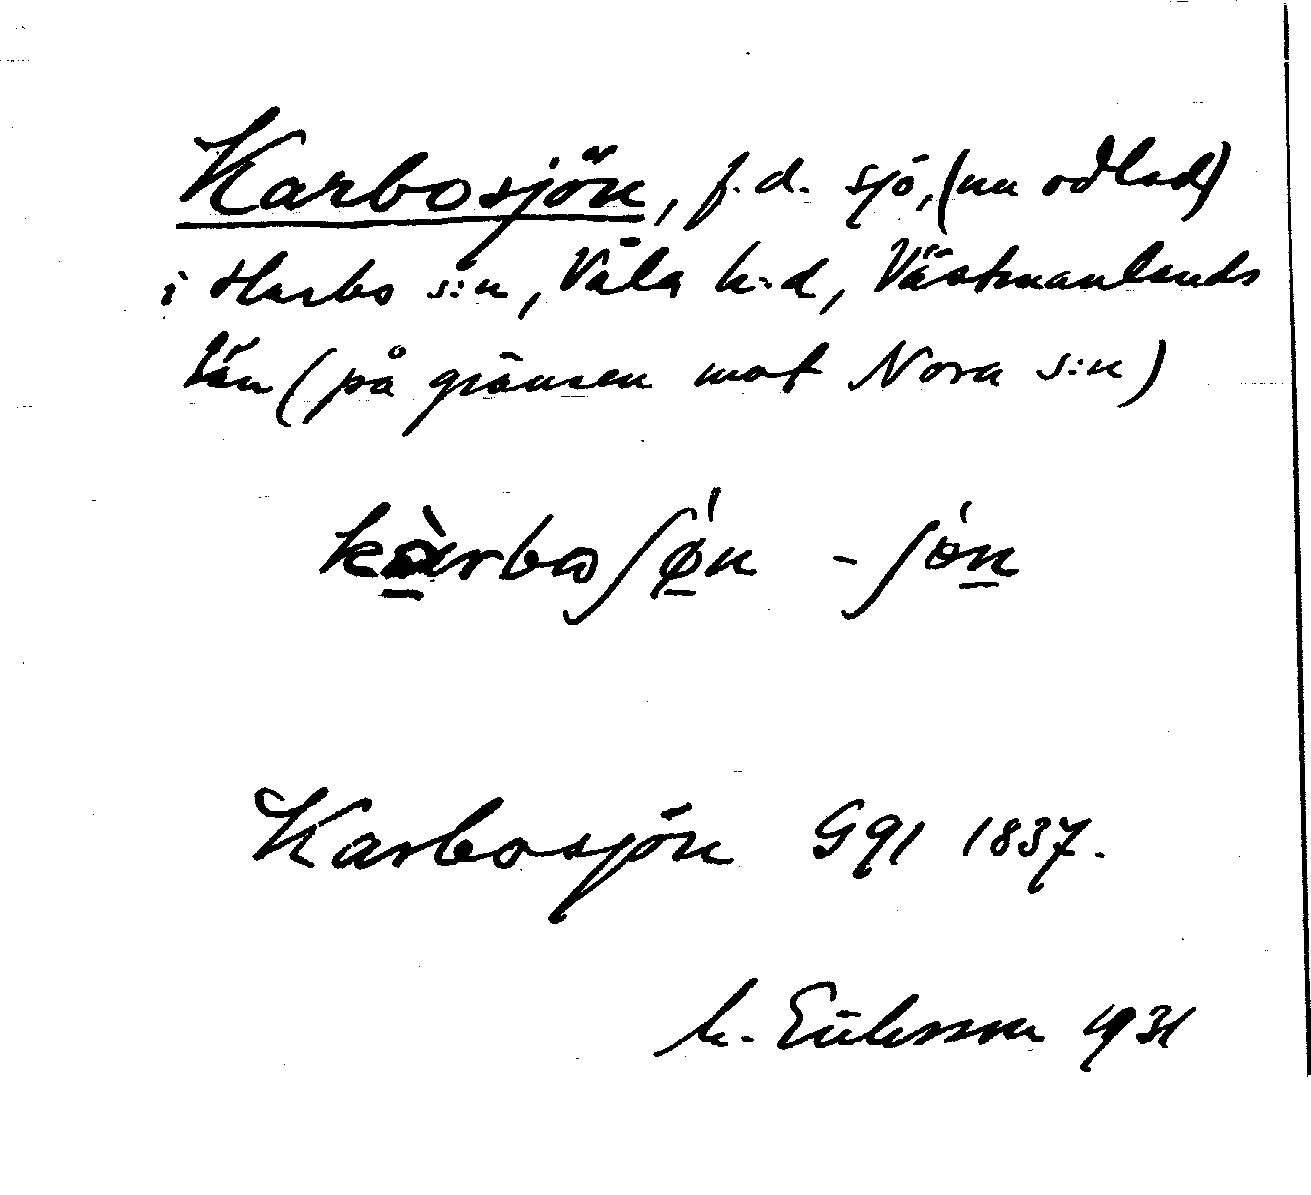 Karbosjön, f.d. sjö, (nu odlad)
i Harbo s:n, Våla h:d, Västmanlands
län (på gränsen mot Nora s:n)
kàrboʃǿn - ʃǿn
Karbosjön G91 1837.
M. Eriksson 1931